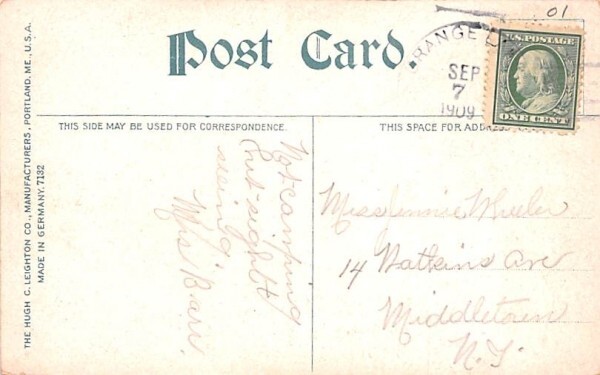 Post Card.
01
ORANGE L
SEP
7
1909
U.S. POSTAGE
ONE CENT
THIS SIDE MAY BE USED FOR CORRESPONDENCE.
THIS SPACE FOR ADDRESS
THE HUGH C. LEIGHTON CO., MANUFACTURERS, PORTLAND, ME., U.S.A.
MADE IN GERMANY. 7132
Not camping
but sight
seeing.
Mrs Barr.
Miss Jennie Wheeler
14 Watkins Ave
Middletown
N.Y.